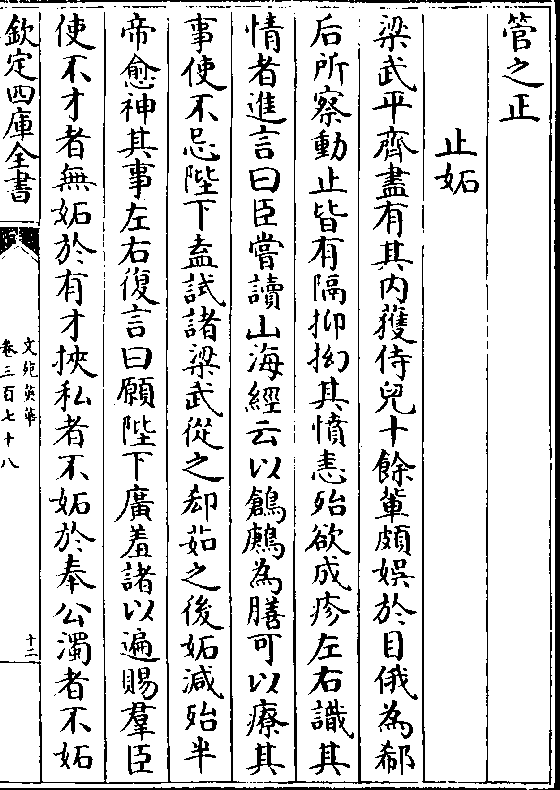 管之正
止妬
梁武平齊盡有其内獲侍兒十餘輩頗娯於目俄為郗
后所察動止皆有隔抑拗其憤恚殆欲成疹左右識其
情者進言曰臣嘗讀山海經云以鶬鶊為膳可以療其
事使不忌陛下盍試諸梁武從之却茹之後妬減殆半
帝愈神其事左右復言曰願陛下廣羞諸以遍賜羣臣
使不才者無妬於有才挾私者不妬於奉公濁者不妬
欽定四庫全書
文苑英華
卷三百七十八
十二